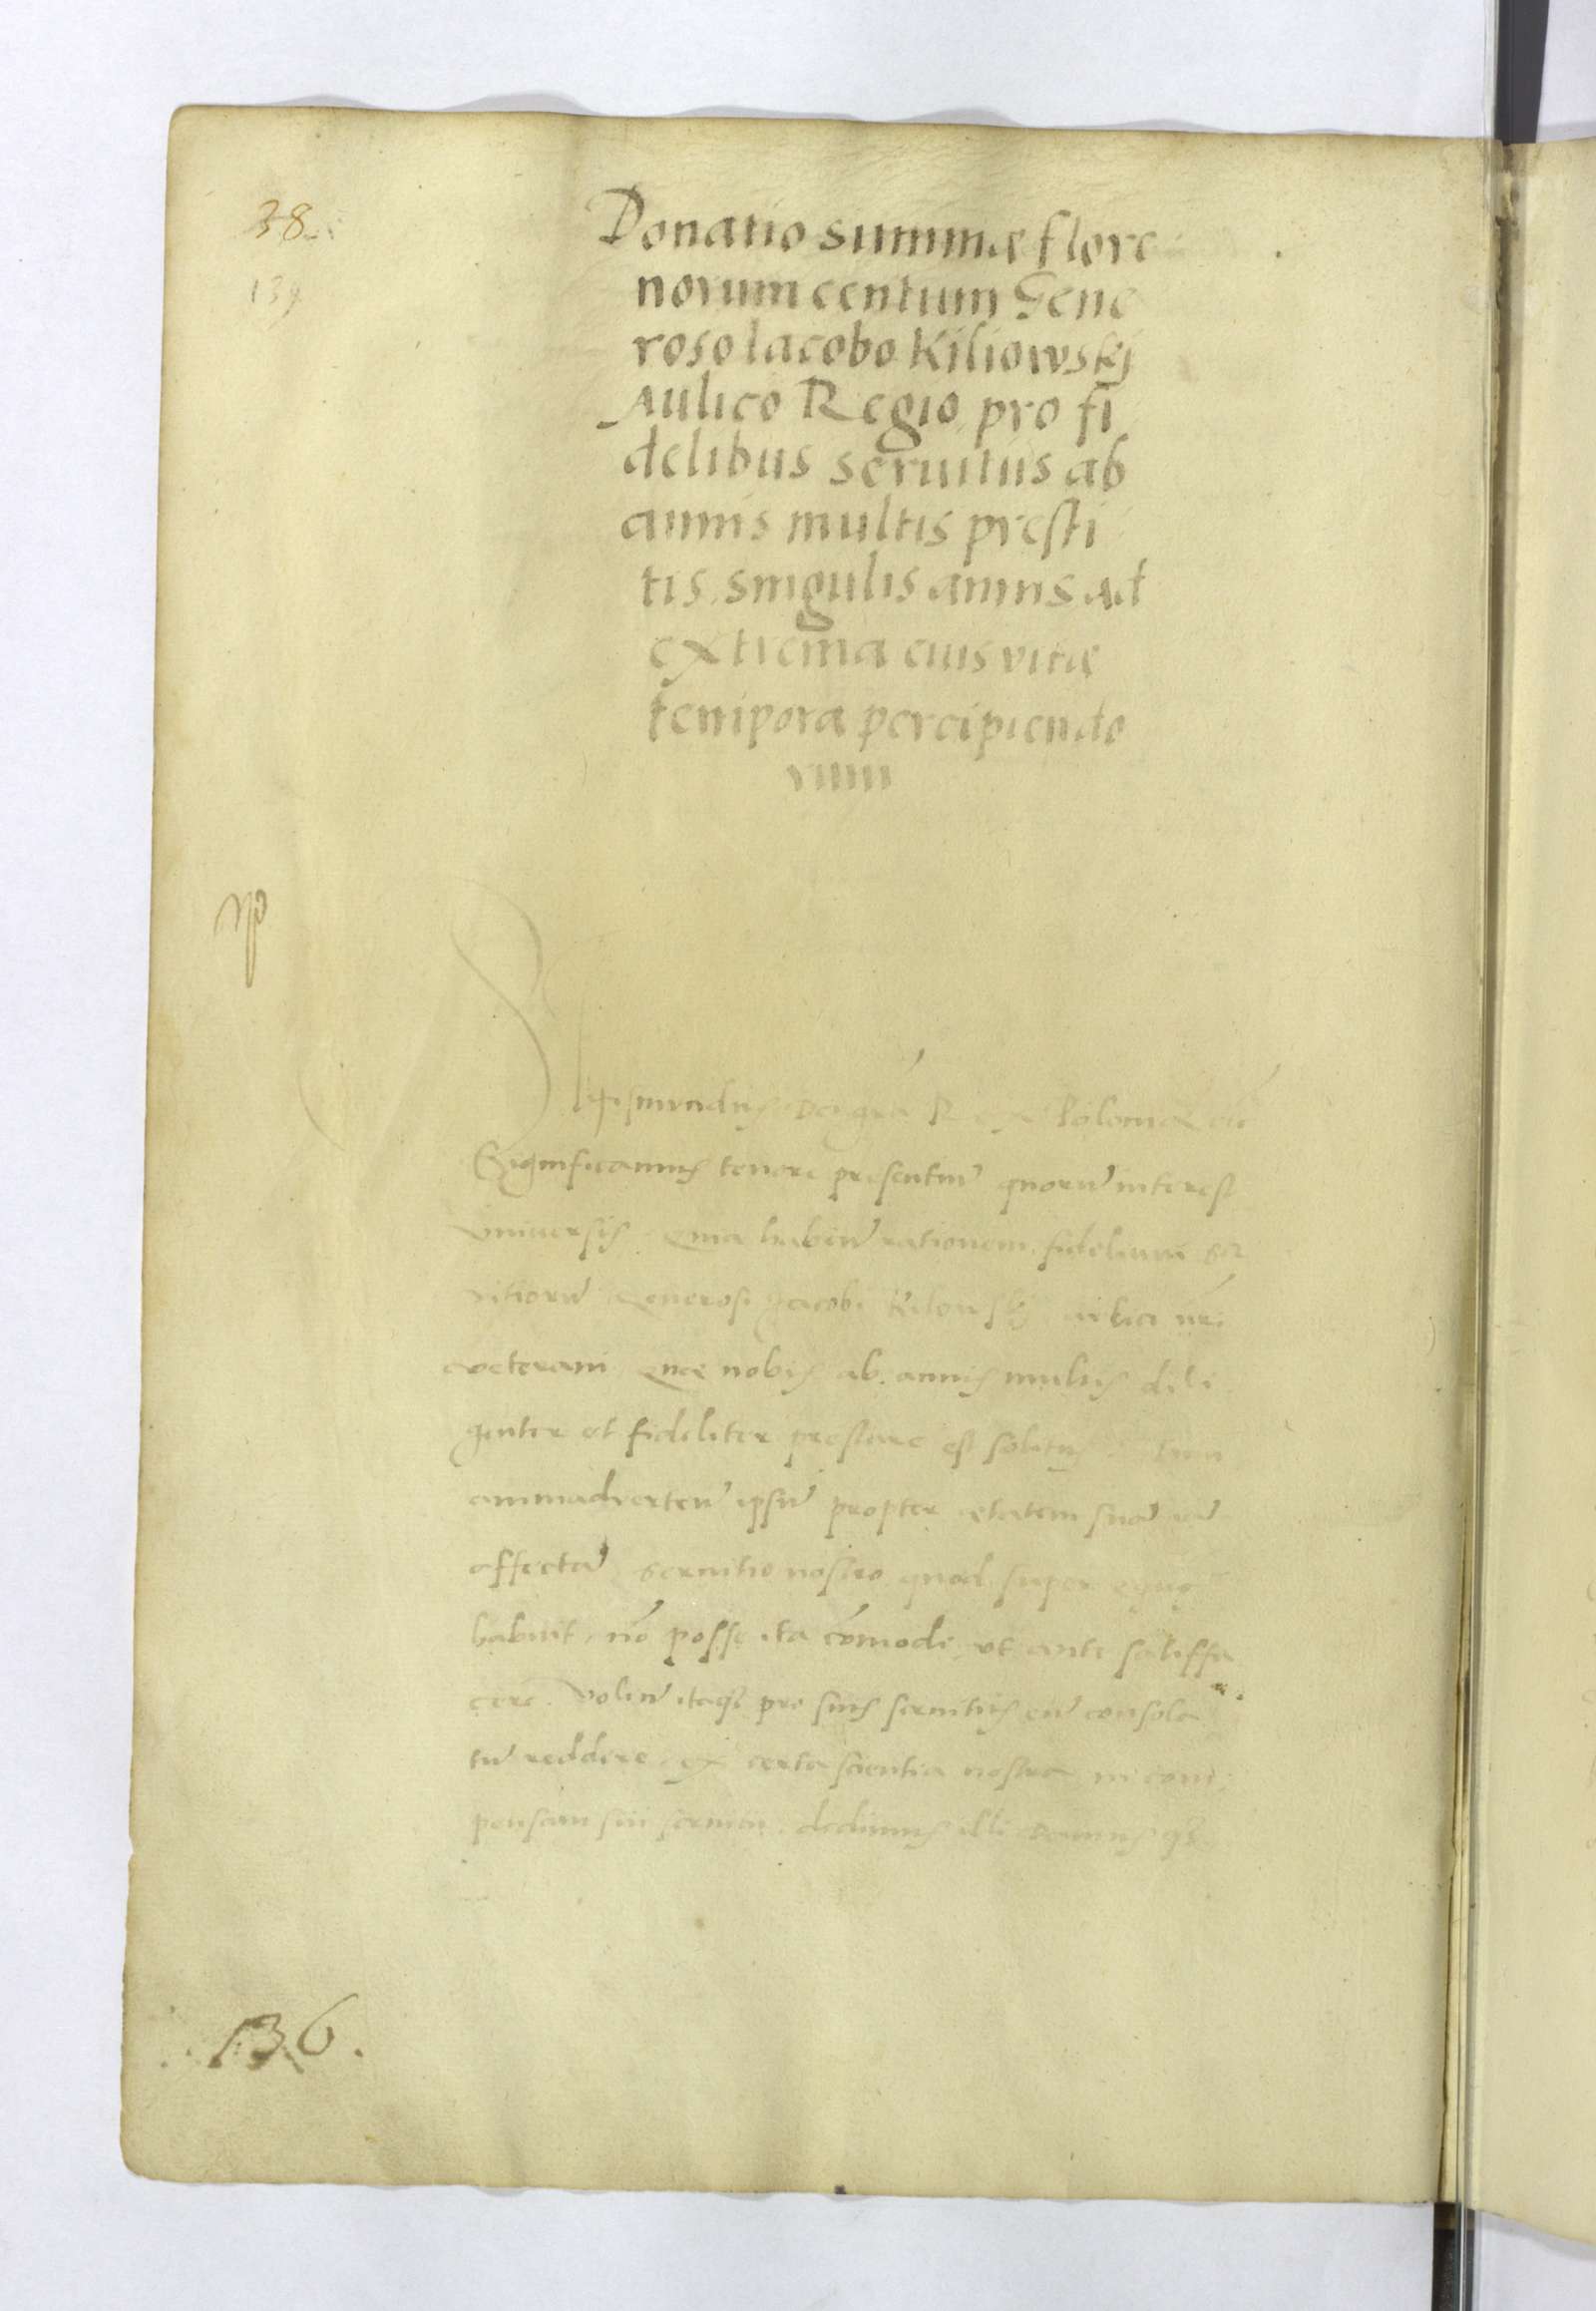 38.
139
Donatio summæ flore
norum centum Gene
roso Iacobo Kiliowskj
Aulico Regio pro fi
delibus seruitiis ab
annis multis presti
tis singulis annis ad
extrema eius vitæ
tempora percipiendo
rum
Sigismundus dei grā Rex Poloniæ etc
Significamus tenore presentiū quorū interest
Vniuersis. Quia habitū rationem fidelium ser
vitiorū Generosi Jacobi Kilowskj aulici nrī
veterani Quæ nobis ab annis multis dili
genter et fideliter prestare est solitus.
animadvertentū ipsū propter ætatem suā iā
affectā seruitio nostro quod super equos
habuit, nō posse ita cōmode, vt ante satisffa
cere. Volentū itaqȝ pro suis seruitiis eū consola
tū reddere ex certa scientia nostra in com
pensam sui seruitii dedimus illi damusqȝ
136.